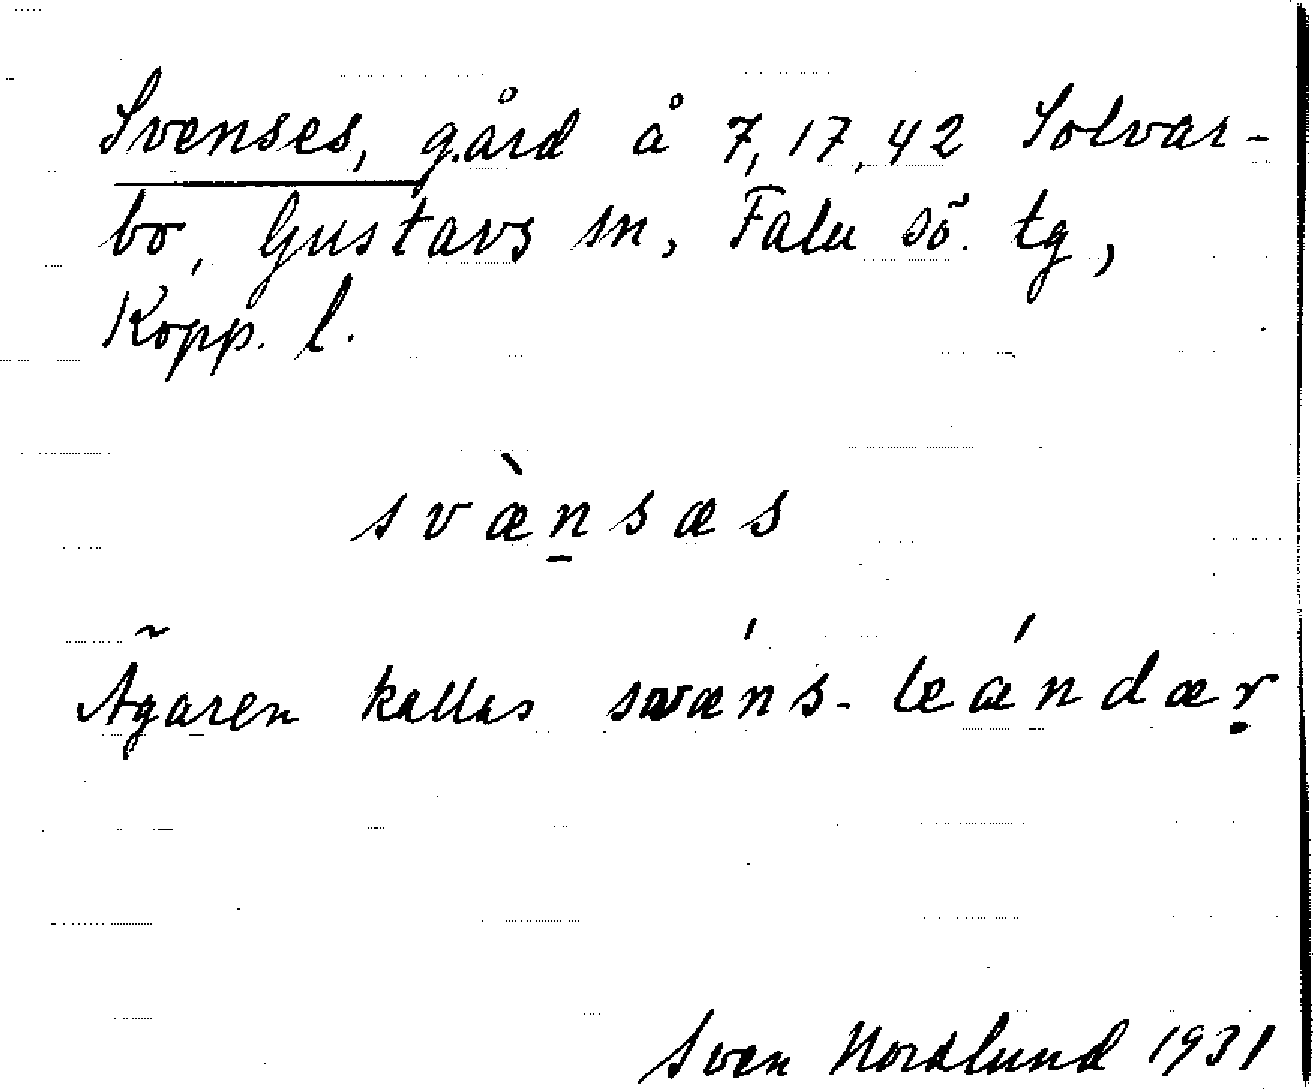 Svenses, gård å 7, 17, 42 Solvar-
bo, Gustavs sn, Falu sö. tg,
Kopp. l.
svæ̀n̠sæs
Ägaren kallas svǽns-leándær̥
Sven Nordlund 1931